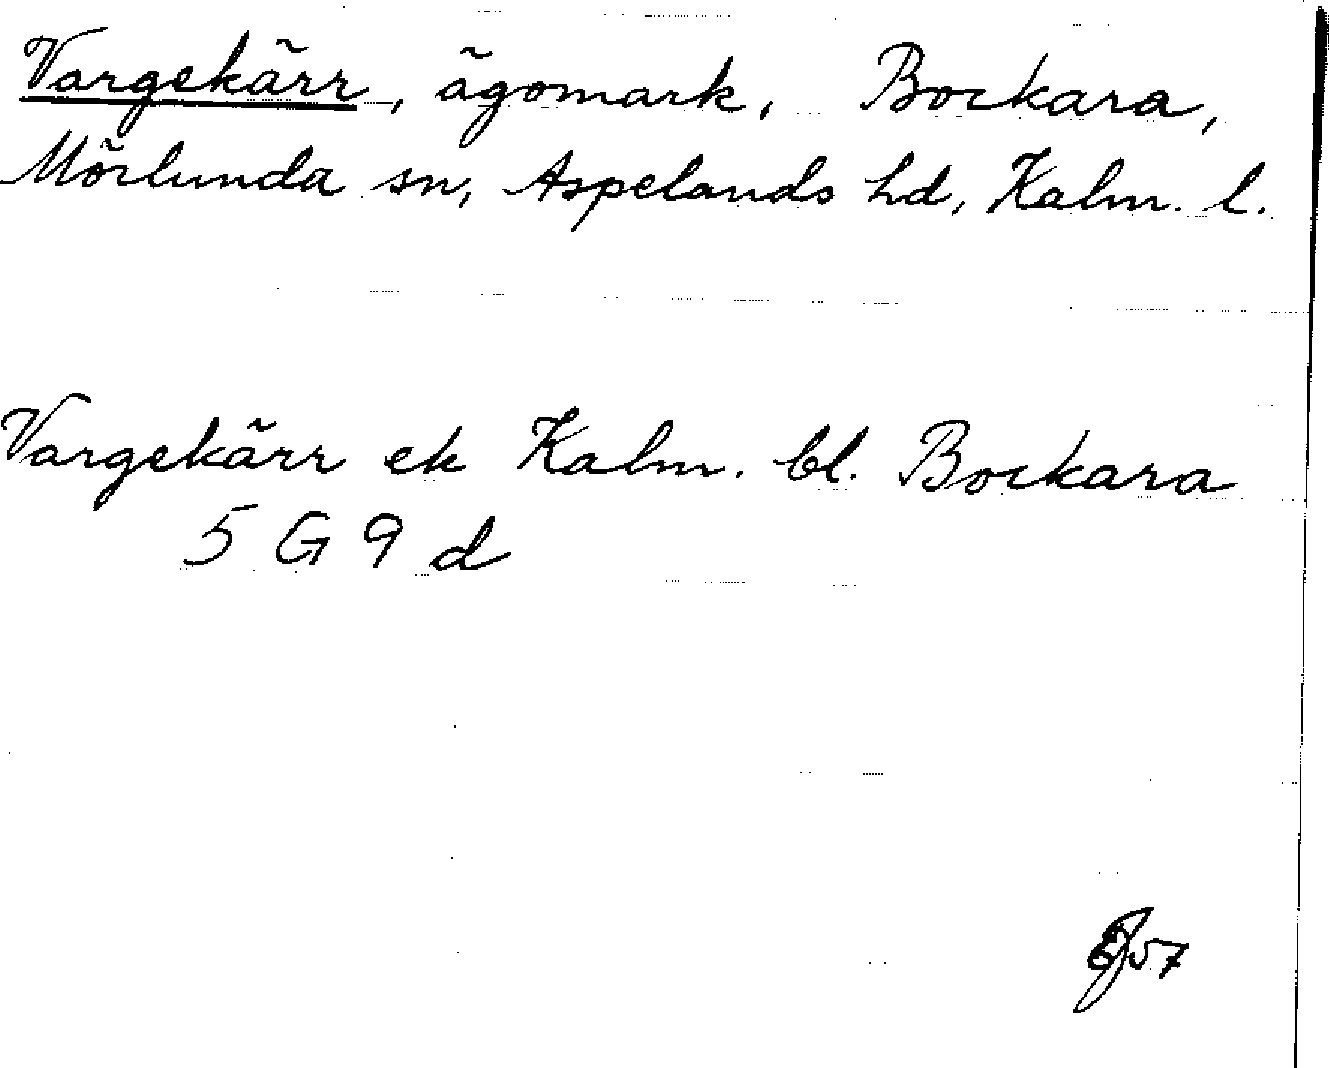 Vargekärr, ägomark, Bockara,
Mörlunda sn, Aspelands hd, Kalm. l.
Vargekärr ek Kalm. bl. Bockara
5 G 9 d